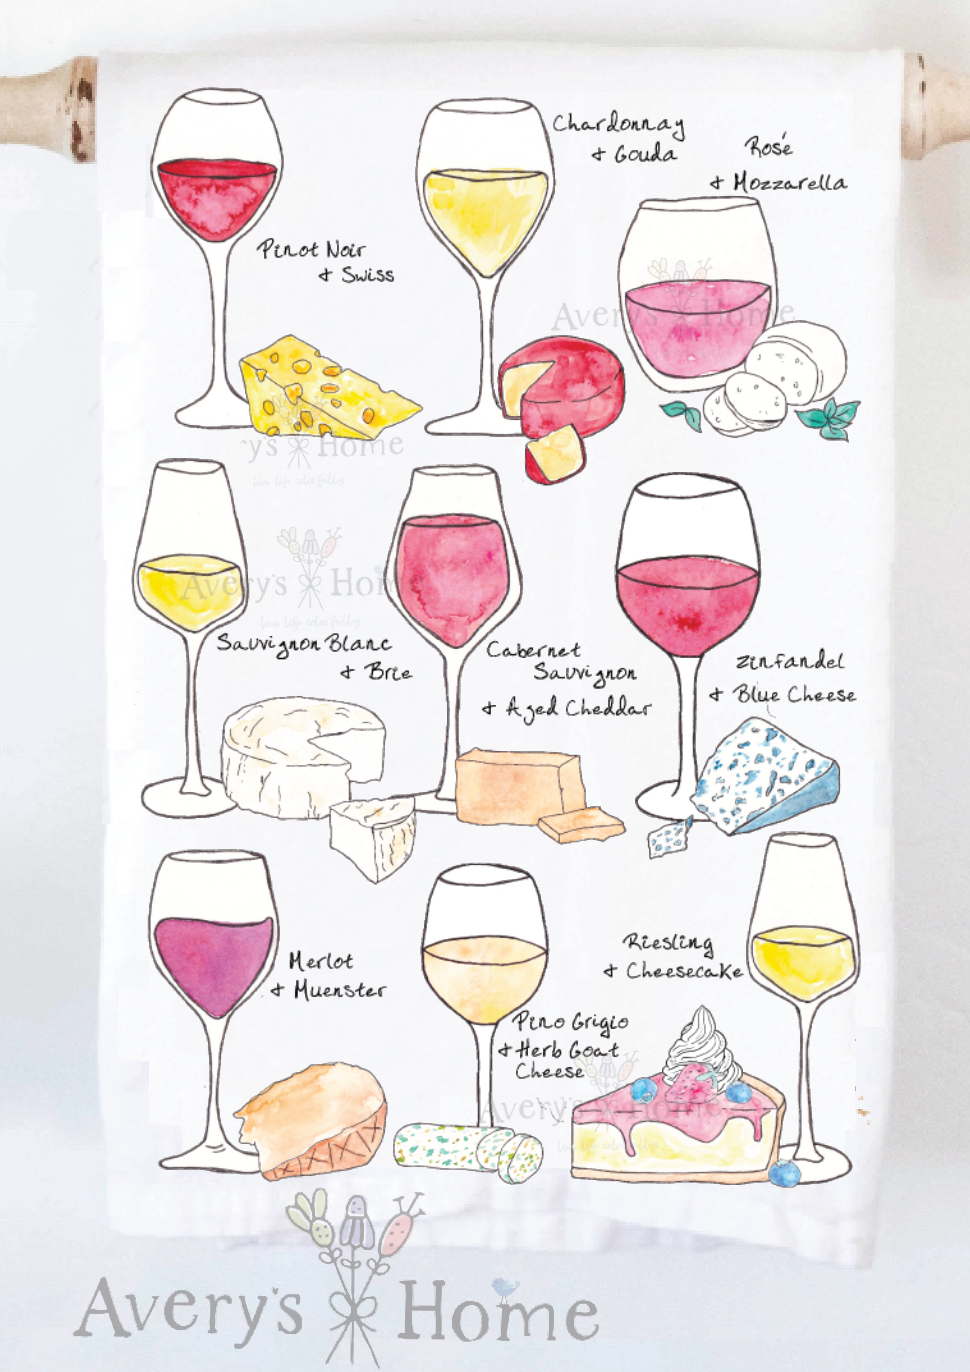 Chardonnay
& Gouda
Rosé
& Mozzarella
Pinot Noir
& Swiss
Avery's Home
y's Home
Live life colorfully
Avery's Hom
Live life colorfully
Sauvignon Blanc
& Brie
Cabernet
Sauvignon
& Aged Cheddar
Zinfandel
& Blue Cheese
Merlot
& Muenster
Riesling
& Cheesecake
Pino Grigio
& Herb Goat
Cheese
Avery's Home
Avery's Home